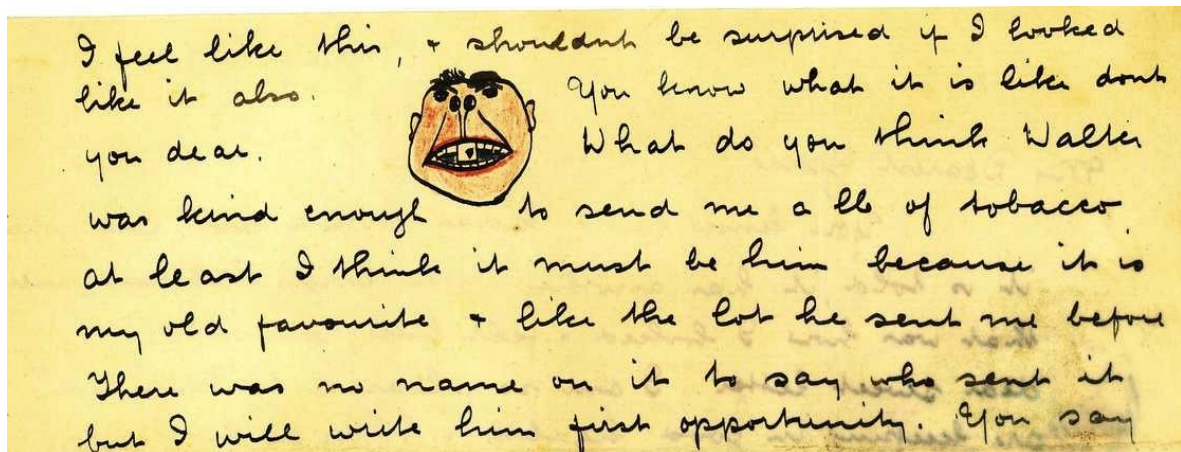 I feel like this, + shouldnt be surprised if I looked
like it also. You know what it is like dont
you dear. What do you think Walter
was kind enough to send me a lb of tobacco
at least I think it must be him because it is
my old favourite + like the lot he sent me before
There was no name on it to say who sent it
but I will write him first opportunity. You say